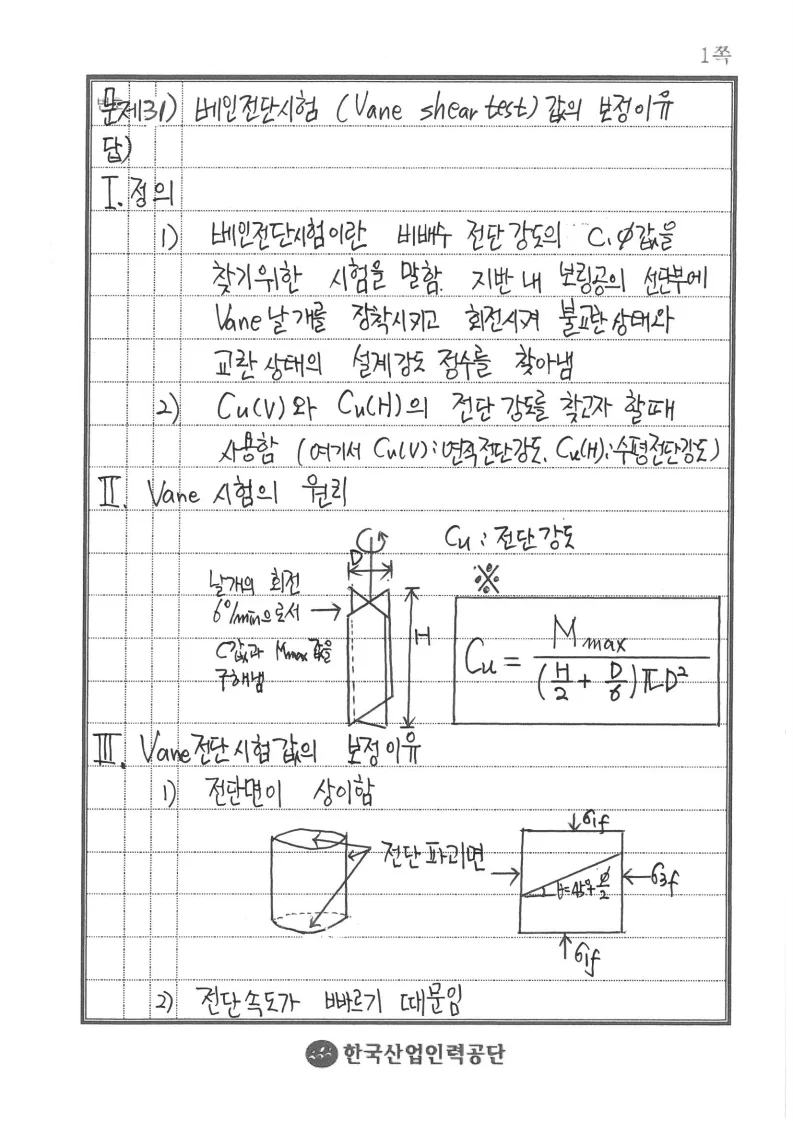 1쪽
문제31) 베인전단시험 (Vane shear test) 값의 보정이유
답)
I. 정의
1) 베인전단시험이란 비배수 전단강도의 C, ∅값을
찾기위한 시험을 말함. 지반 내 보링공의 선단부에
Vane날개를 장착시키고 회전시켜 불교란상태와
교란상태의 설계강도 정수를 찾아냄
2) Cu(V)와 Cu(H)의 전단강도를 찾고자 할때
사용함 (여기서 Cu(V):연직전단강도, Cu(H):수평전단강도)
II. Vane 시험의 원리
Cu : 전단강도
D
※
날개의 회전
6°/min으로서
C값과 Mmax값을
구해냄
H
Cu = Mmax / (H/2 + D/6)πD²
III. Vane전단시험값의 보정이유
1) 전단면이 상이함
σ1f
전단파괴면
θ=45°+∅/2
σ3f
σ1f
2) 전단속도가 빠르기 때문임
한국산업인력공단